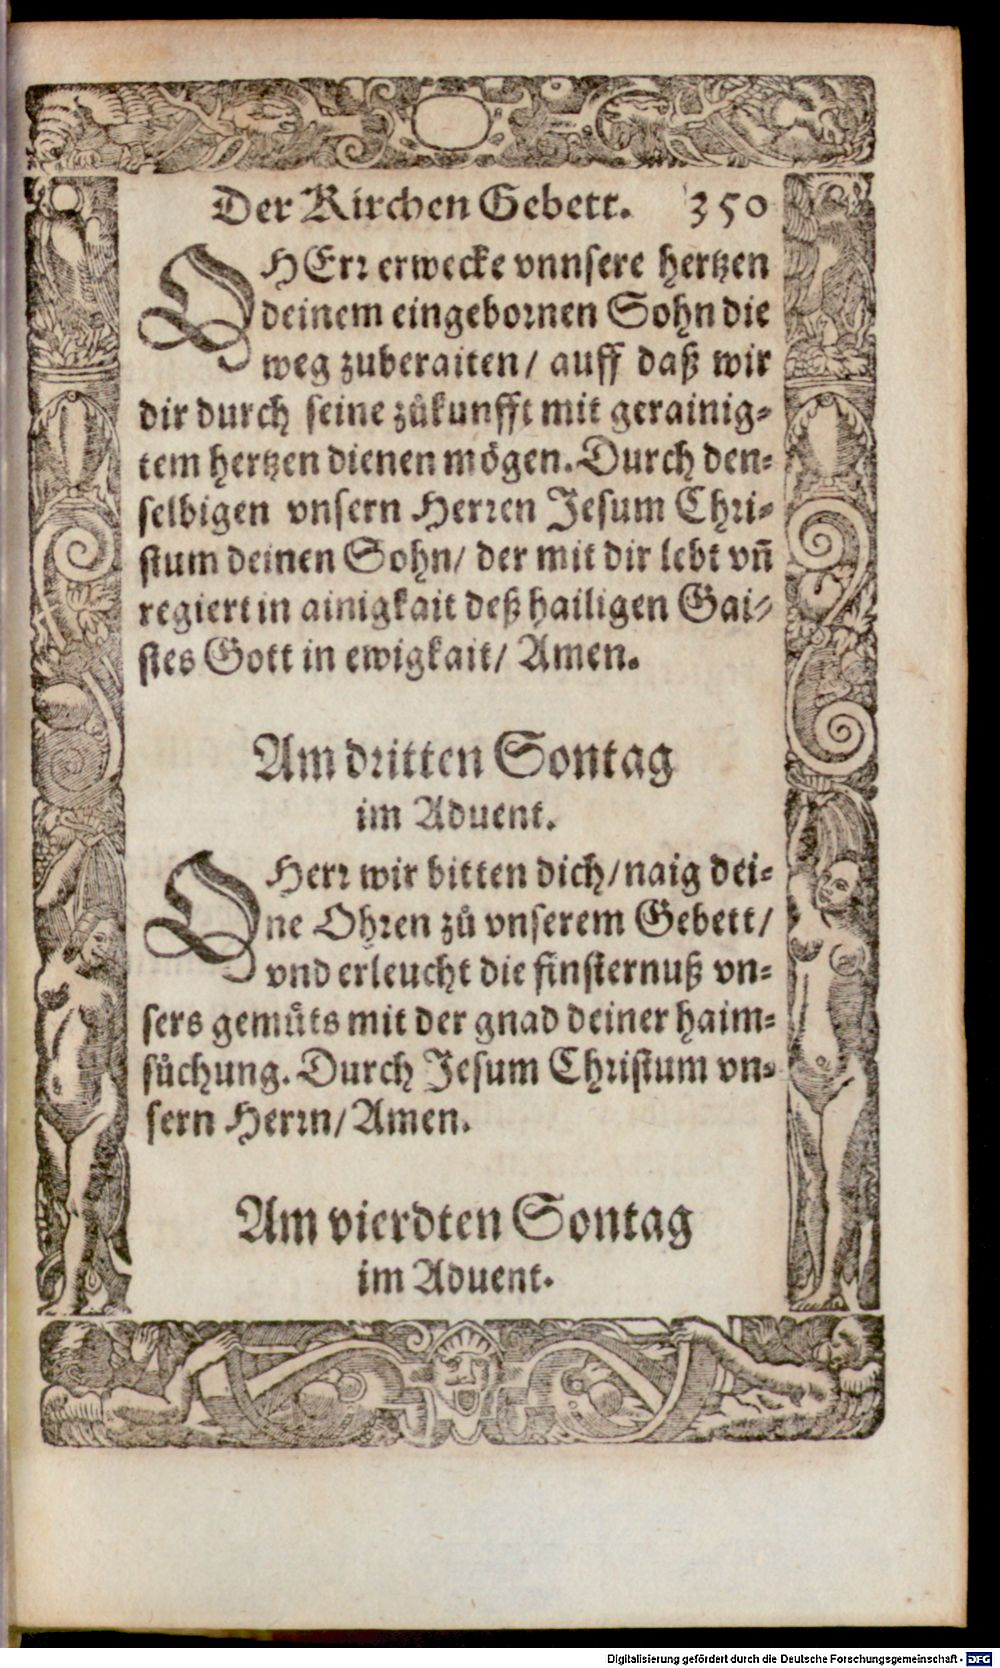 Der Kirchen Gebett. 350
O HErr erwecke vnnsere hertzen
deinem eingebornen Sohn die
weg zuberaiten/ auff daß wir
dir durch seine zůkunfft mit gerainig-
tem hertzen dienen mögen. Durch den-
selbigen vnsern Herren Jesum Chri-
stum deinen Sohn/ der mit dir lebt vñ
regiert in ainigkait deß hailigen Gai-
stes Gott in ewigkait/ Amen.
Am dritten Sontag
im Aduent.
O Herr wir bitten dich/ naig dei-
ne Ohren zů vnserem Gebett/
vnd erleucht die finsternuß vn-
sers gemůts mit der gnad deiner haim-
sůchung. Durch Jesum Christum vn-
sern Herrn/ Amen.
Am vierdten Sontag
im Aduent.
Digitalisierung gefördert durch die Deutsche Forschungsgemeinschaft - DFG